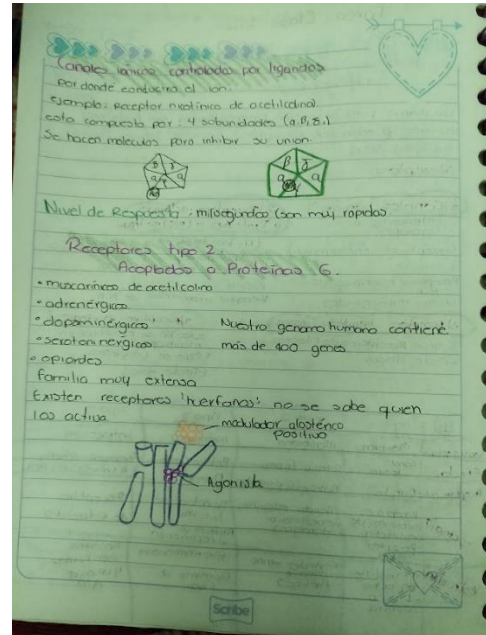 Canales iónicos controlados por ligandos
por donde conducira el ion.
ejemplo: Receptor nicotínico de acetilcolina.
esta compuesto por: 4 subunidades
Se hacen moleculas para inhibir su union.
β γ
α α
β γ
α α
Nivel de Respuesta: milisegundos (son muy rápidos
Receptores tipo 2.
Acoplados a Proteínas G.
• muscarínicos de acetilcolina
• adrenérgicos
• dopaminérgicos Nuestro genoma humano contiene
• serotoninérgicos más de 400 genes
• opiordes
familia muy extensa
Existen receptores 'huerfanos' no se sabe quien
los activa.
modulador alosterico
positivo
Agonista
Scribe